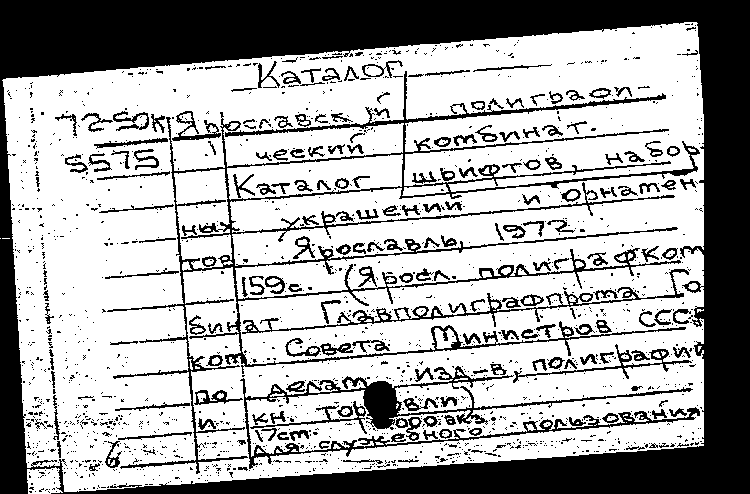 Каталог
72-50к Ярославский полиграфи-
5575 ческий комбинат.
Каталог шрифтов, набор-
ных украшений и орнамен-
тов. Ярославль, 1972.
159с. (Яросл. полиграфком
бинат Главполиграфпрома Го
ком. Совета Министров СССР
по делам изд-в, полиграфии
и кн. торговли)
17ст. 000 экз.
Для служебного пользования
6